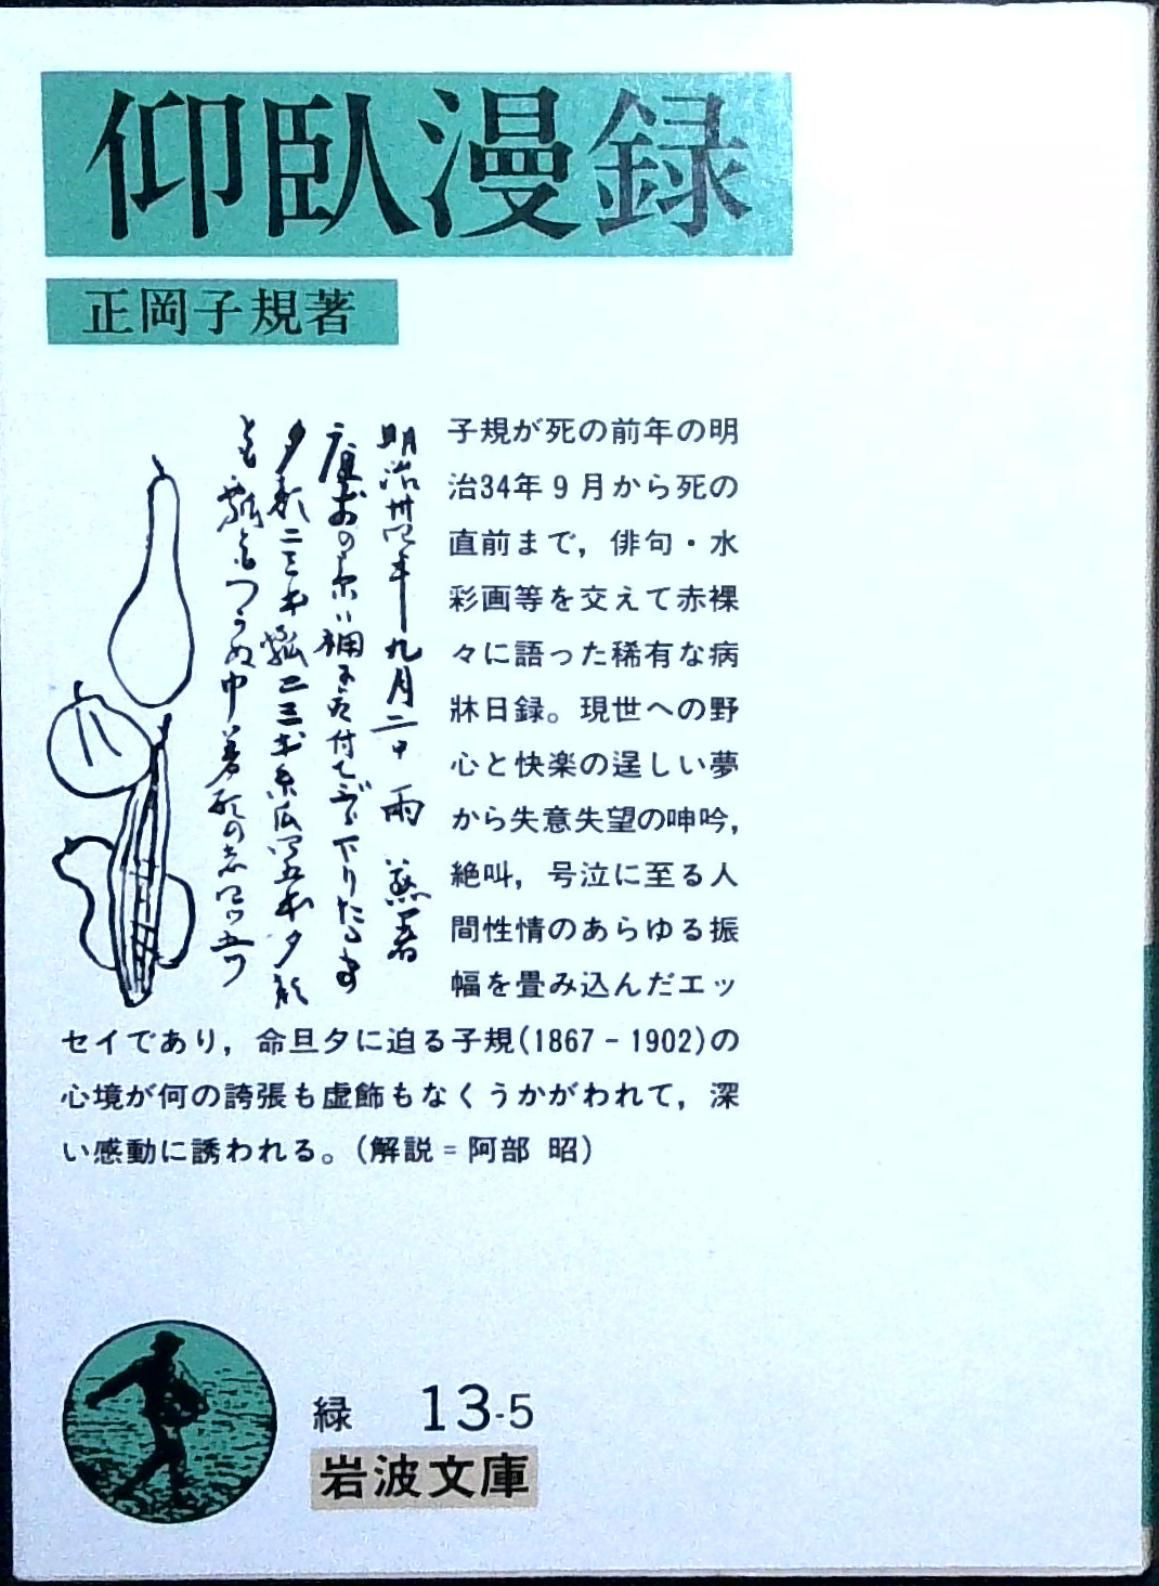 仰臥漫録
正岡子規著
明治卅四年九月二日 雨 蒸暑
庭前の景ハ棚に取付てぶら下りたるもの
夕顔二三本瓢二三本糸瓜四五本夕顔
とも瓢ともつかぬ巾着形の者四ツ五ツ
子規が死の前年の明
治34年9月から死の
直前まで，俳句・水
彩画等を交えて赤裸
々に語った稀有な病
牀日録。現世への野
心と快楽の逞しい夢
から失意失望の呻吟，
絶叫，号泣に至る人
間性情のあらゆる振
幅を畳み込んだエッ
セイであり，命旦夕に迫る子規(1867－1902)の
心境が何の誇張も虚飾もなくうかがわれて，深
い感動に誘われる。(解説＝阿部 昭)
緑 13-5
岩波文庫